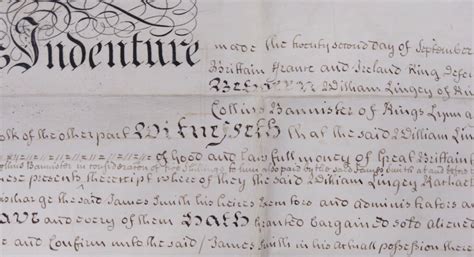 s Indenture made the twenty second day of September
Brittain France and Ireland King Defe
Between William Lingey of Kin
Collins Bannister of Kings Lynn a
of the other part Witnesseth that the said William Lin
of Good and Lawful money of Great Brittain
Collins Bannister in consideration of five shillings to him also paid by the said James Smith at and before
these presents the receipt whereof they the said William Lingey Rachael
discharge the said James Smith his heirs Executors and administrators a
have and every of them Hath Granted bargained sold aliened
e and Confirm unto the said James Smith in his actual possession there